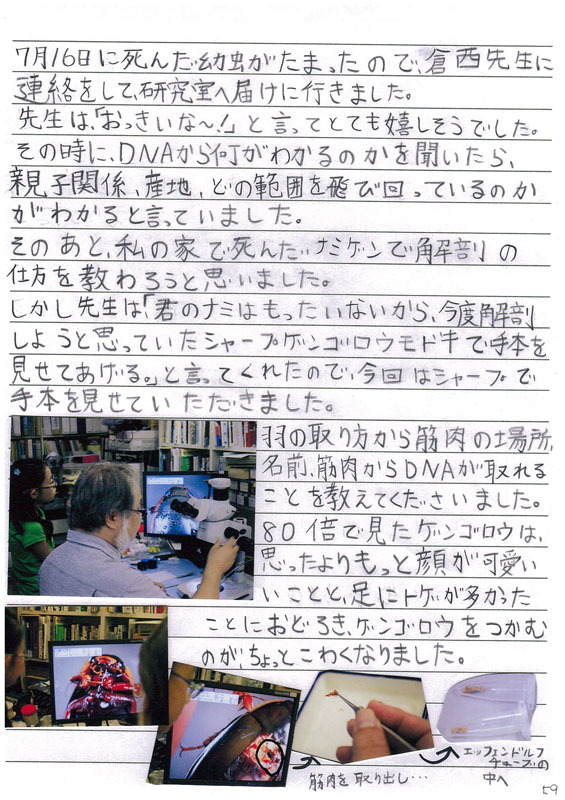 7月16日に死んだ幼虫がたまったので、倉西先生に
連絡をして、研究室へ届けに行きました。
先生は、「おっきいな〜!」と言ってとても嬉しそうでした。
その時に、DNAから何がわかるのかを聞いたら、
親子関係、産地、どの範囲を飛び回っているのか
がわかると言っていました。
そのあと、私の家で死んだナミゲンで解剖の
仕方を教わろうと思いました。
しかし先生は「君のナミはもったいないから、今度解剖
しようと思っていたシャープゲンゴロウモドキで手本を
見せてあげる。」と言ってくれたので、今回はシャープで
手本を見せていただきました。
羽の取り方から筋肉の場所、
名前、筋肉からDNAが取れる
ことを教えてくださいました。
80倍で見たゲンゴロウは、
思ったよりもっと顔が可愛い
いことと、足にトゲが多かった
ことにおどろき、ゲンゴロウをつかむ
のが、ちょっとこわくなりました。
筋肉を取り出し…
エッフェンドルフ
チューブの
中へ
59